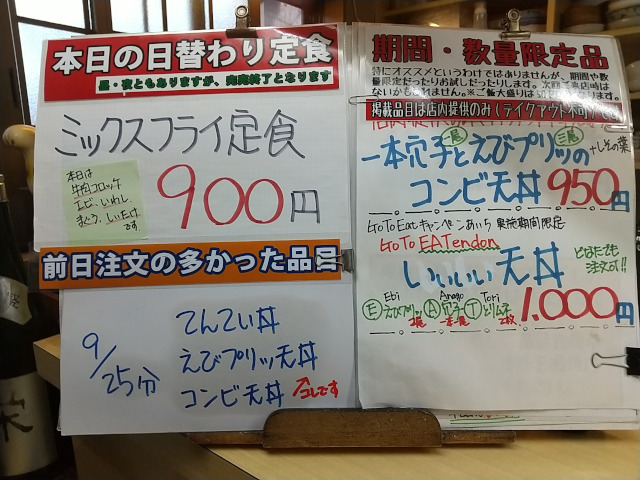 本日の日替わり定食
昼・夜ともありますが、完売終了となります
ミックスフライ定食
本日は
牛肉コロッケ
エビ・いわし、
まぐろ、しいたけ
です
900円
前日注文の多かった品目
9/25分
てんてい丼
えびプリッ天丼
コンビ天丼
コレです
期間・数量限定品
特にオススメというわけではありませんが、期間や数
量限定だったりお試しだったりします。次回ご来店時は
ないかもしれません。※ご飯大盛りは
掲載品目は店内提供のみ(テイクアウト不可)です
一本穴子とえびプリッの
+しその葉
コンビ天丼 950円
GoToEatキャンペーンあいち 実施期間限定
GoTo EATendon
どなたでも
注文可!!
いいいい天丼
Ebi Anago Tori
Ⓔえびプリッ Ⓐ穴子 Ⓣとりムネ
2尾 一本 2枚
1,000円